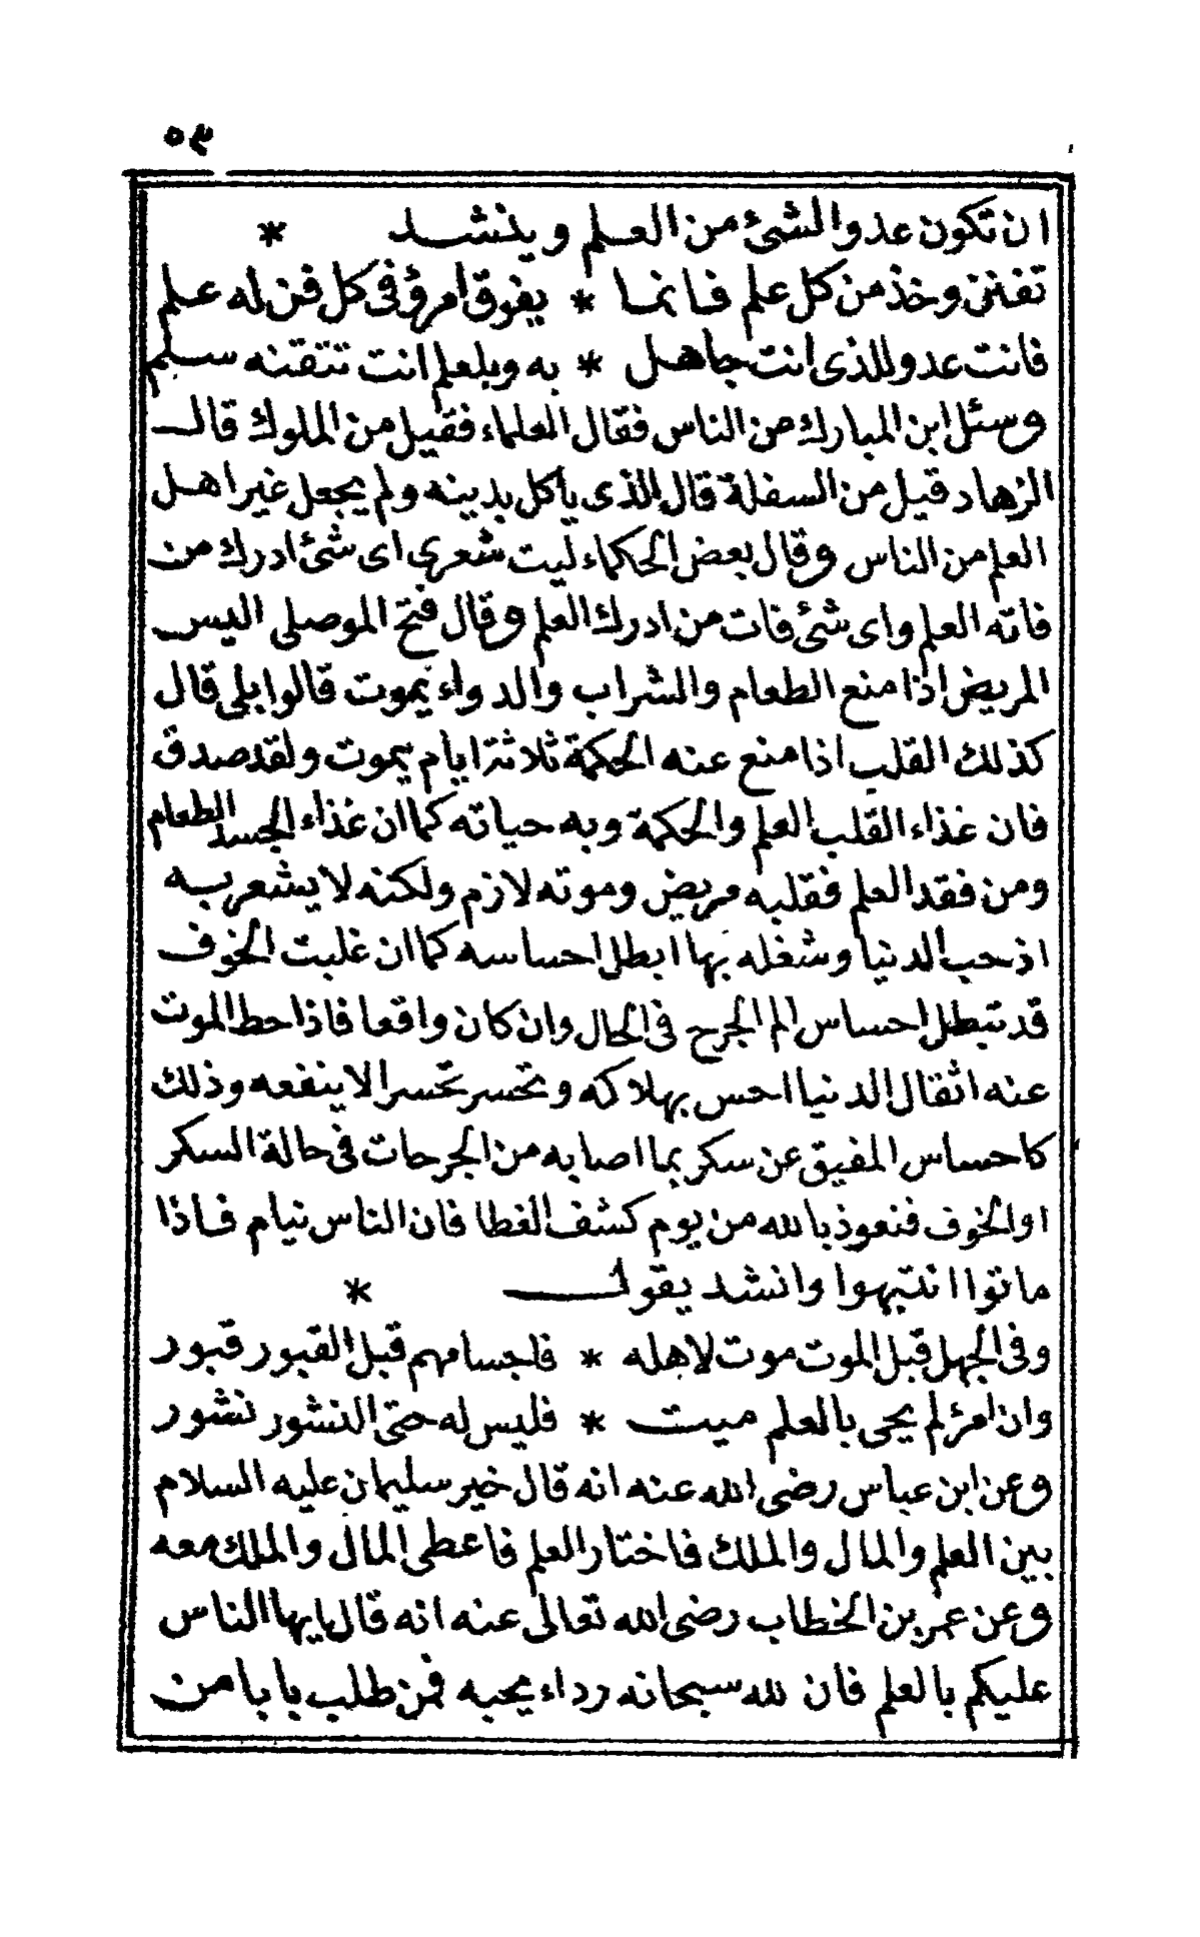 ٥٣
ان تكون عدوا لشئ من العلم وينشد *
تفنن وخذ من كل علم فانما * يفوق امرؤ فى كل فن له علم
فانت عدو للذى انت جاهل * به وبلعلم انت تتقنه سلم
وسئل ابن المبارك من الناس فقال العلماء فقيل من الملوك قال
الزهاد قيل من السفلة قال الذى ياكل بدينه ولم يجعل غير اهل
العلم من الناس وقال بعض الحكماء ليت شعرى اى شئ ادرك من
فاته العلم واى شئ فات من ادرك العلم وقال فتح الموصلى اليس
المريض اذا منع الطعام والشراب والدواء يموت قالوا بلى قال
كذلك القلب اذا منع عنه الحكمة ثلاثة ايام يموت ولقد صدق
فان غذاء القلب العلم والحكمة وبه حياته كما ان غذاء الجسد الطعام
ومن فقد العلم فقلبه مريض وموته لازم ولكنه لا يشعر به
اذ حب الدنيا وشغله بها ابطل احساسه كما ان غلبت الخوف
قد تبطل احساس الم الجرح فى الحال وان كان واقعا فاذا حط الموت
عنه اثقال الدنيا احس بهلاكه وتحسر تحسرا لا ينفعه وذلك
كاحساس المفيق عن سكر بما اصابه من الجرحات فى حالة السكر
او الخوف فنعوذ بالله من يوم كشف الغطا فان الناس نيام فاذا
ماتوا انتبهوا وانشد يقول *
وفى الجهل قبل الموت موت لاهله * فاجسامهم قبل القبور قبور
وان امرئ لم يحى بالعلم ميت * فليس له حتى النشور نشور
وعن ابن عباس رضى الله عنه انه قال خير سليمان عليه السلام
بين العلم والمال والملك فاختار العلم فاعطى المال والملك معه
وعن عمر بن الخطاب رضى الله تعالى عنه انه قال يايها الناس
عليكم بالعلم فان لله سبحانه رداء يحبه فمن طلب بابا من